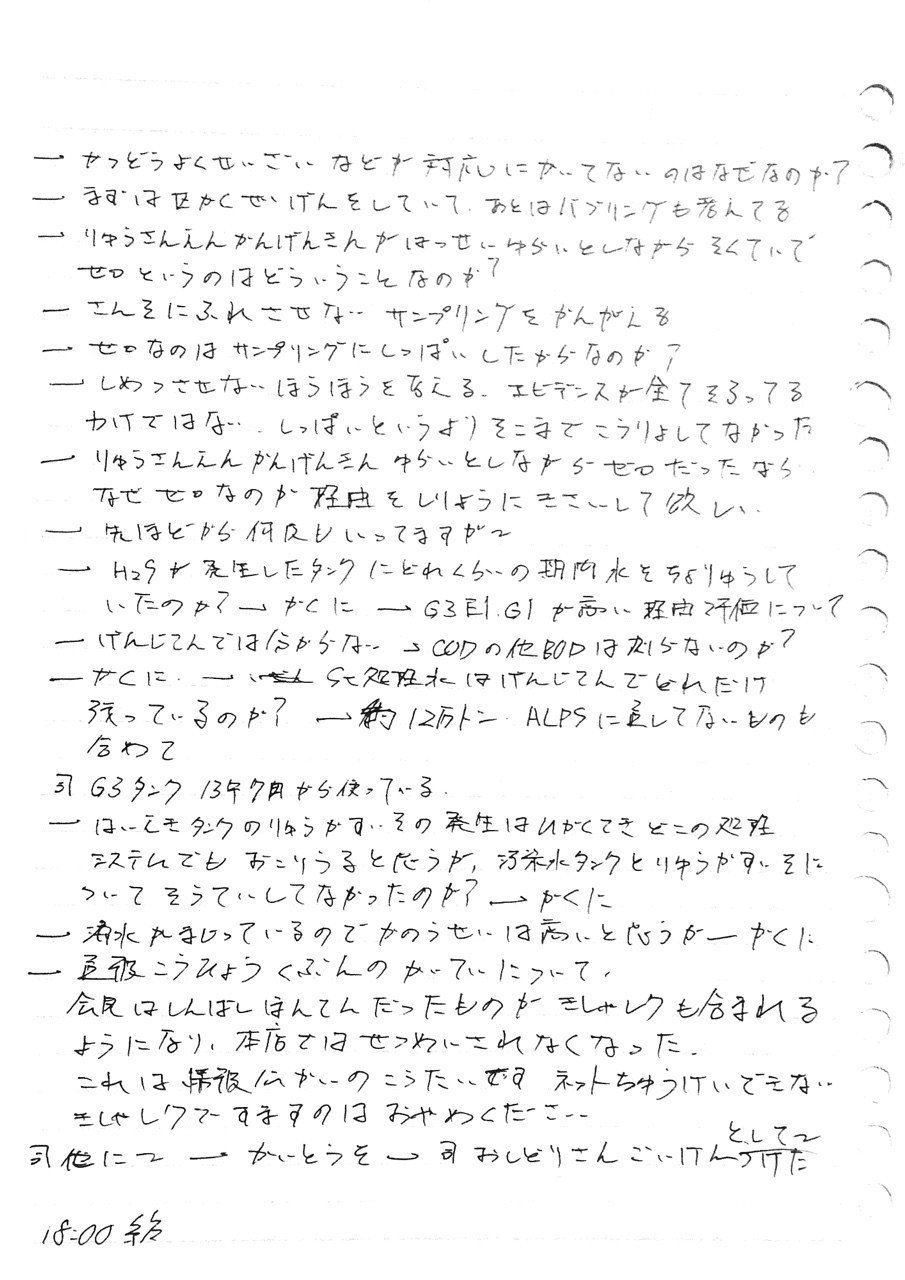 一 かつどうよくせいざいなどが対応にかいてないのはなぜなのか?
一 まずは区かくせいげんをしていて、あとはバブリングも考えてる
一 りゅうさんえんかんげんきんがはっせいゆらいとしながら そくていで
ゼロというのはどういうことなのか?
一 さんそにふれさせない サンプリングをかんがえる
一 ゼロなのはサンプリングにしっぱいしたからなのか?
一 しめつさせないほうほうを考える、エビデンスが全てそろってる
わけではない、しっぱいというよりそこまでこうりょしてなかった
一 りゅうさんえんかんげんきんゆらいとしながらゼロだったなら
なぜゼロなのか 経由をしりょうにきさいして欲しい.
一 先ほどから何度もいってますが〜
一 H2Sが発生したタンクにどれくらいの期間水をちょりゅうして
いたのか? → かくに → G3 E1.G1が高い経由評価について
一 げんじてんでは分からない → CODの他BODは測らないのか?
一 かくに. → Sr処理水はげんじてんでどれだけ
残っているのか? → 約12万トン. ALPSに直してないものも
含めて
司 G3タンク 13年7月から使っている.
一 はいえきタンクのりゅうかすいその発生はひかくてきどこの処理
システムでもおこりうると思うが, 汚染水タンクとりゅうかすいそに
ついてそうていしてなかったのか? → かくに
一 海水がまじっているのでかのうせいは高いと思うが → かくに
一 直後こうひょうくぶんのかいていについて,
会見はしんばしほんてんだったものが きしゃレクも含まれる
ようになり、本店ではせつめいされなくなった.
これは情報公かいのこうたいです ネットちゅうけいできない
きしゃレクですますのはおやめください..
司 他に〜 → かいとうを → 司 おしどりさん ごいけんとして〜
つけた
18:00 終